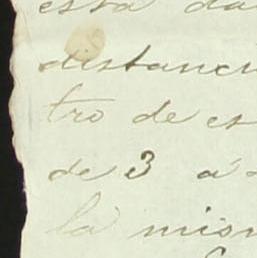 esta da
distanci
tro de es
de 3 a
la mism